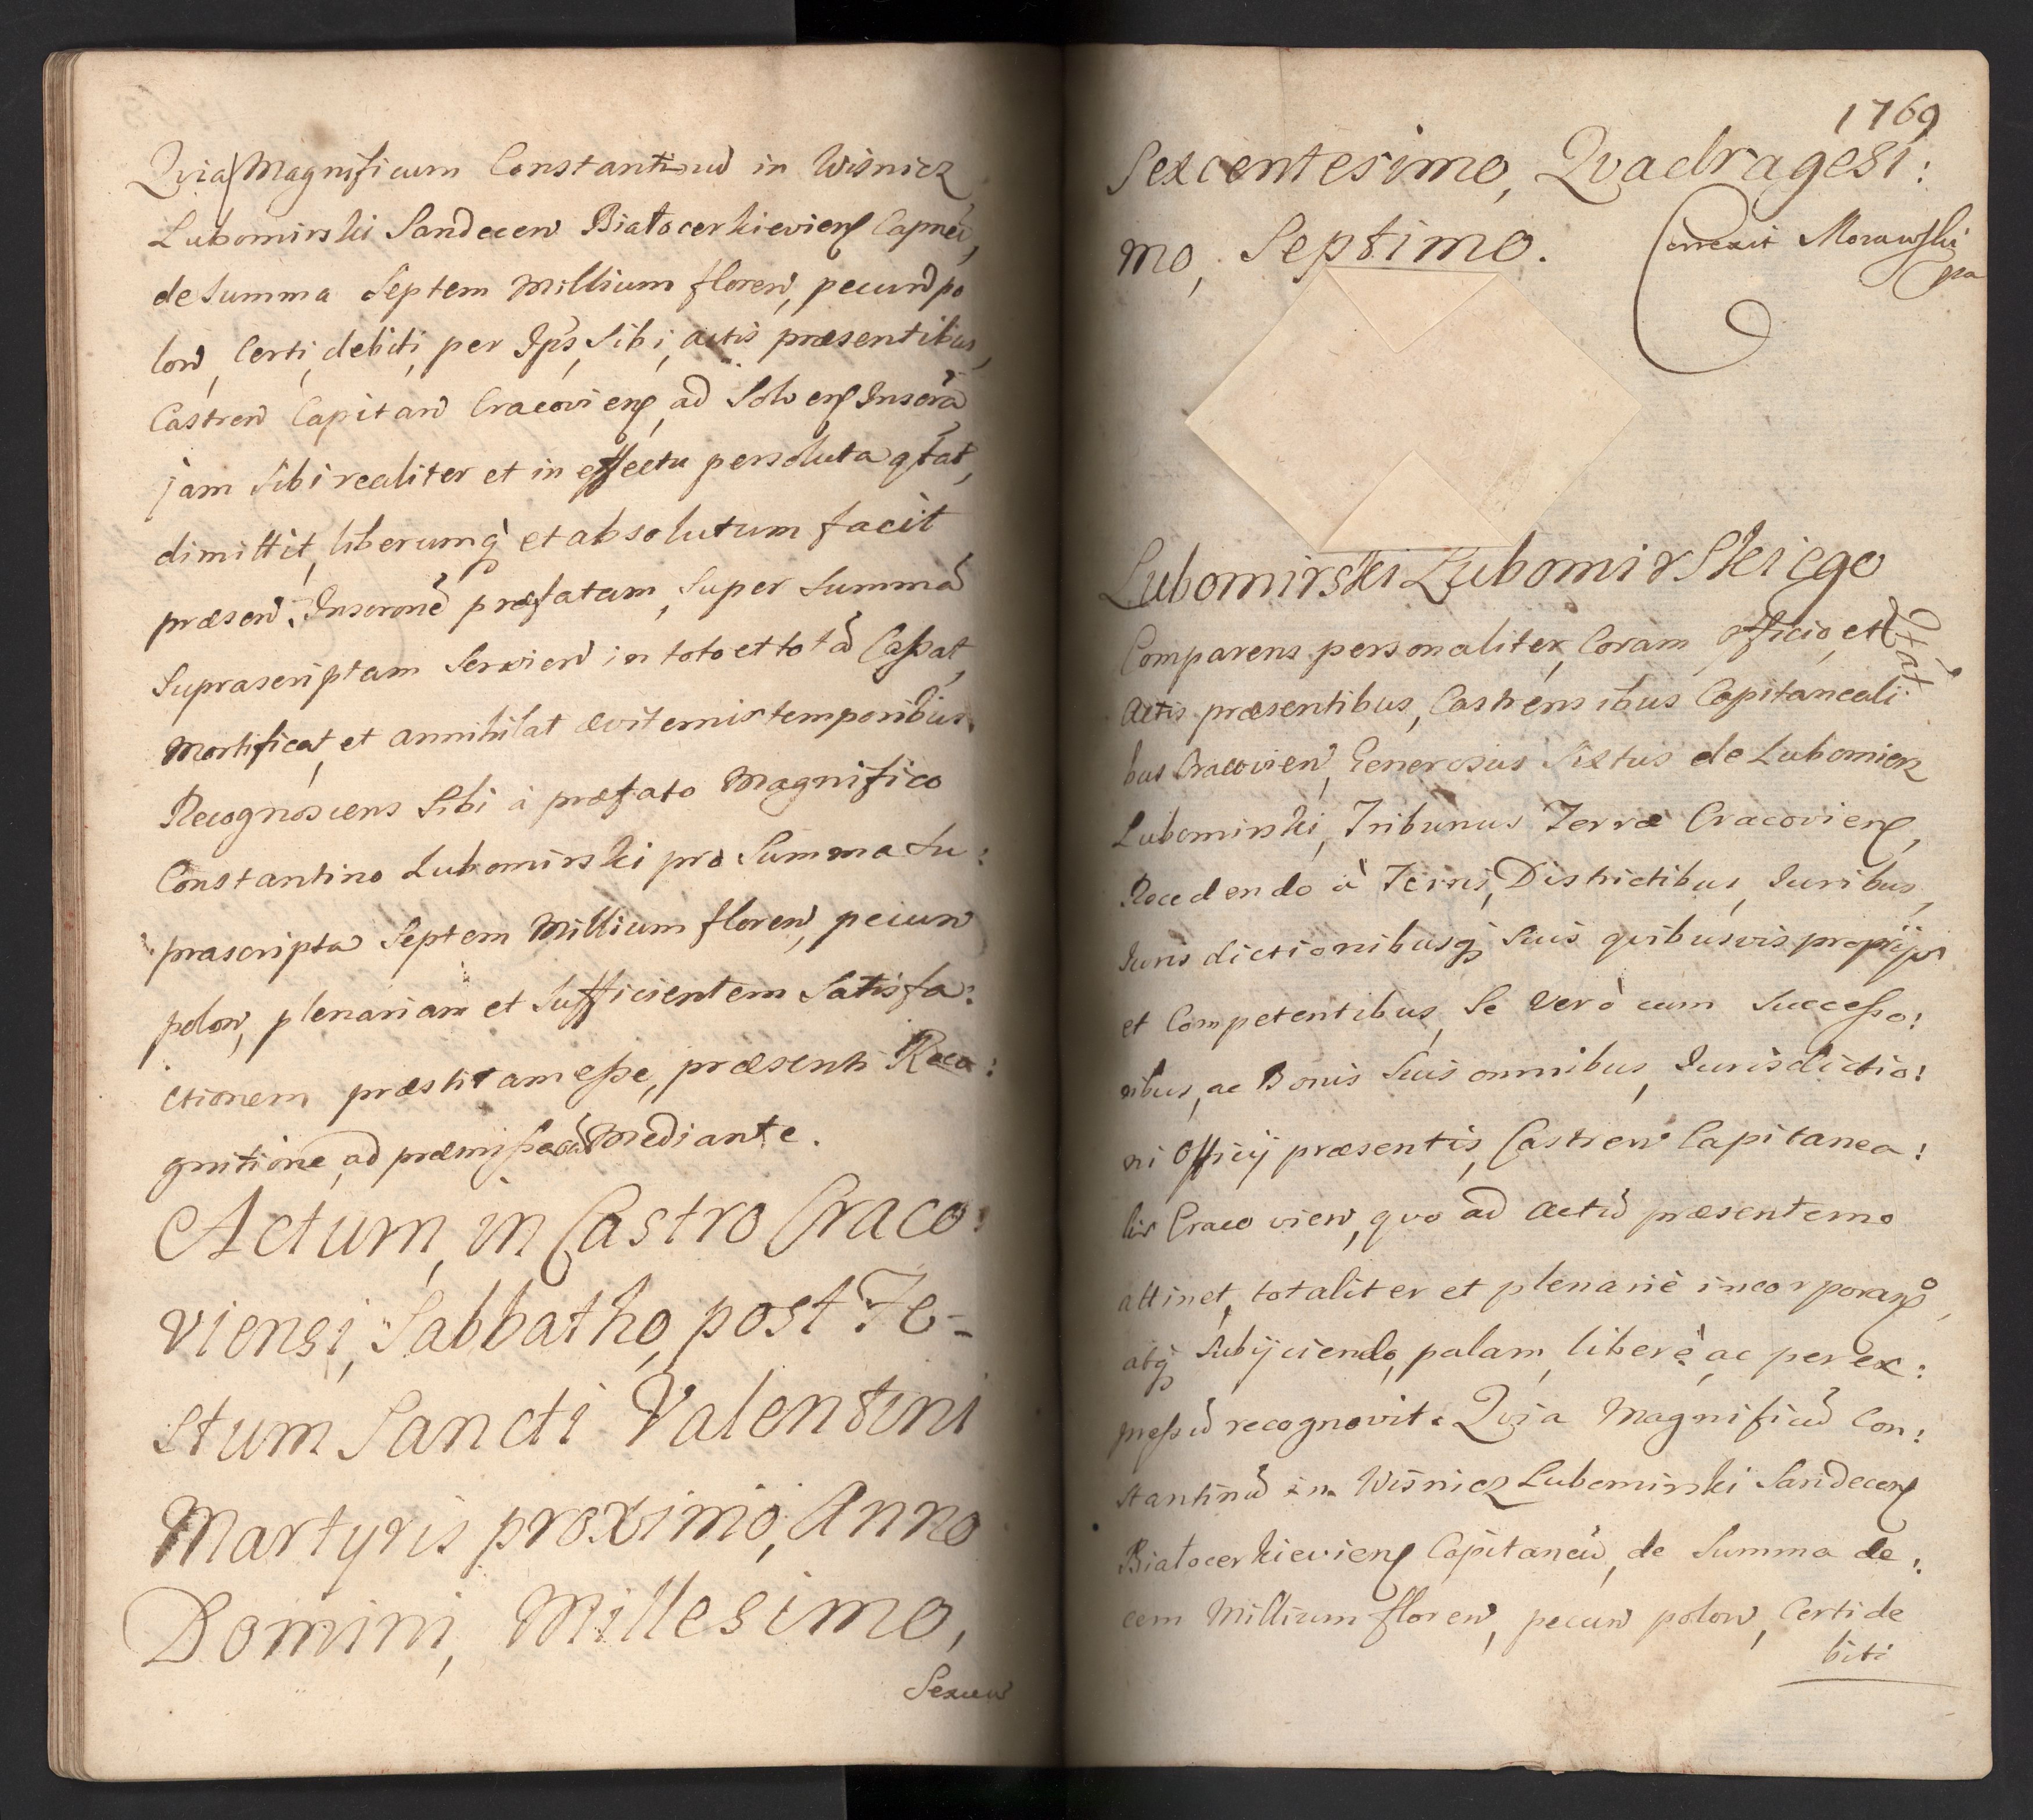 Qvia Magnificum Constantinū in Wisnicz
Lubomirski Sandecen Białocerkieviens Capneū,
de Summa Septem Millium floren, pecun po
lon, Certi, debiti, per Ips, Sibi, actis præsentibus,
Castren Capitan Cracoviens, ad Solvens Inscra
jam Sibi realiter et in effectu persoluta qtat,
dimittit, liberumq et absolutum facit
præsen, Inscronē præfatam, Super Summā
Suprascriptam Servien in toto et totā Cassat,
Mortificat, et annihilat æviternis temporibus.
Recognoscens Sibi à præfato Magnifico
Constantino Lubomirski pro Summa Su:
prascripta Septem Millium floren, pecun
polon, plenariam et Sufficientem Satisfa:
ctionem præstitam esse, præsenti Reco:
gnitione ad præmissa Mediante.
Actum, in Castro Craco:
viensi, Sabbatho, post Fe-
stum Sancti Valentini
Martyris proximo, Anno
Domini, Millesimo,
Sexcen
1769
Sexcentesimo, Qvadragesi:
mo, Septimo.
Correxit Morawski
mpa
Lubomirski Lubomirskiego
qtat
Comparens personaliter, Coram Officio, et
Actis præsentibus, Castrensibus Capitaneali
bus Cracovien, Generosus Sixtus de Lubomierz
Lubomirski, Tribunus Terræ Cracoviens,
Recedendo à Terris, Districtibus, Juribus,
Jurisdictionibusq Suis qvibusvis proprijs
et Competentibus, Se Verò cum Successo:
ribus, ac Bonis Suis omnibus, Jurisdictio:
ni Officij præsentis, Castren Capitanea:
lis Cracovien, qvo ad Actū præsentem
attinet, totaliter et plenariè incorporando,
atq Subijciendo, palam, liberè, ac per ex:
pressū recognovit. Qvia Magnificū Con:
stantinū in Wisnicz Lubomirski Sandecens
Białocerkieviens Capitaneū, de Summa de:
cem Millium floren, pecun polon, Certi de
biti